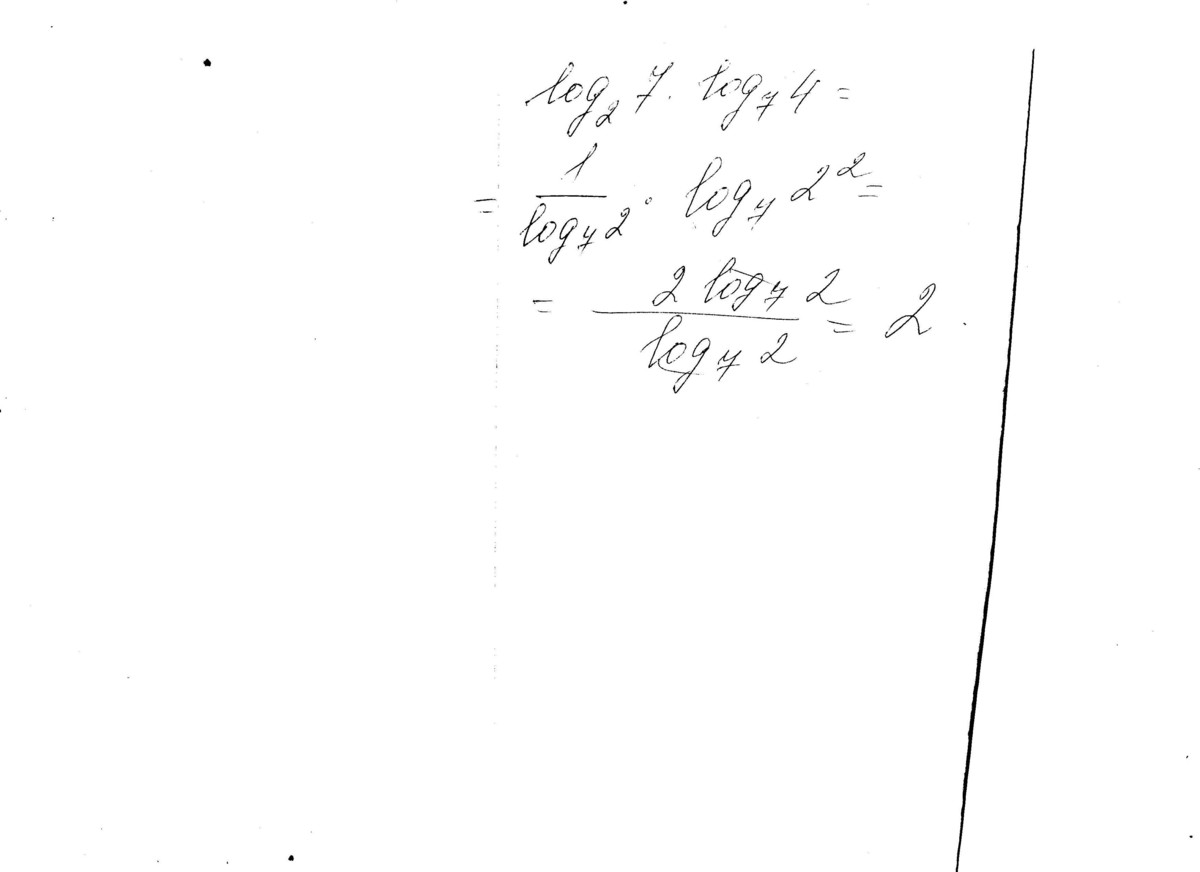 log₂ 7 · log₇ 4 =
= 1/log₇ 2 · log₇ 2² =
= 2 log₇ 2 / log₇ 2 = 2.